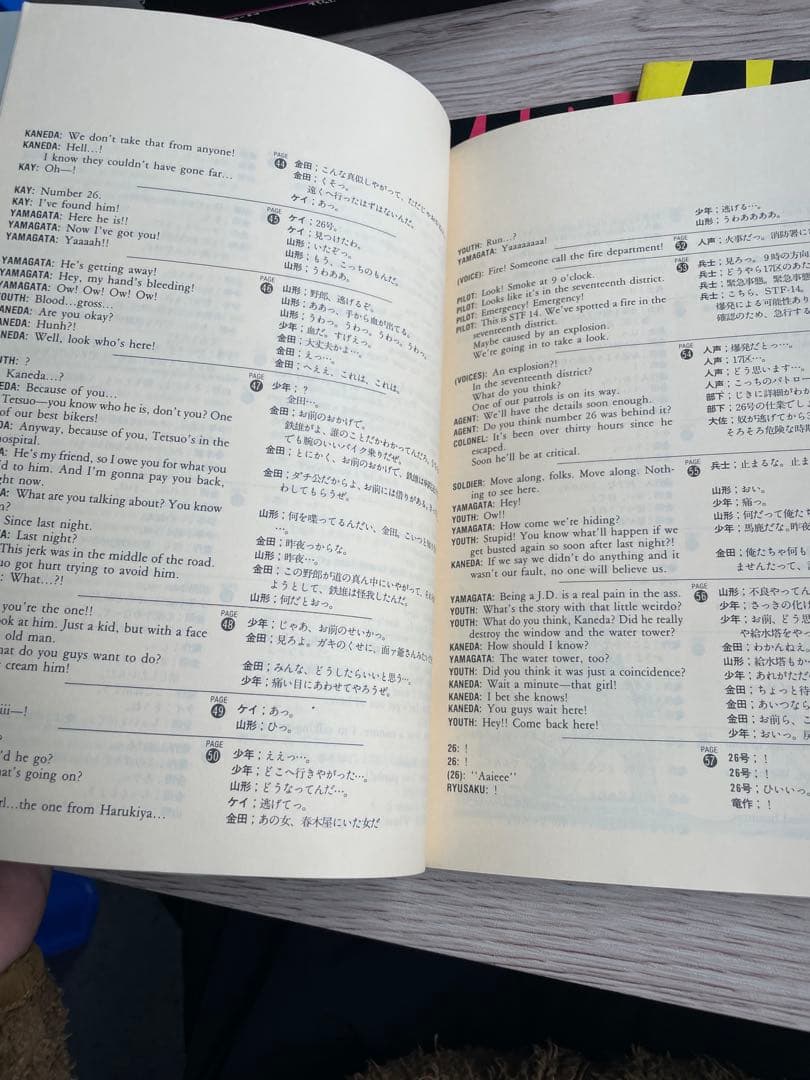 KANEDA: We don't take that from anyone!
KANEDA: Hell...!
I know they couldn't have gone far...
KAY: Oh—!
PAGE
44
金田；こんな真似しやがって、ただじゃ
金田；くそっ。
遠くへ行ったはずはないんだ。
ケイ；あっ。
KAY: Number 26.
KAY: I've found him!
YAMAGATA: Here he is!!
YAMAGATA: Now I've got you!
YAMAGATA: Yaaah!!
PAGE
45
ケイ；26号。
ケイ；見つけたわ。
山形；いたぞっ。
山形；もう、こっちのもんだ。
山形；うわああ。
YAMAGATA: He's getting away!
YAMAGATA: Hey, my hand's bleeding!
YAMAGATA: Ow! Ow! Ow! Ow!
YOUTH: Blood...gross...
KANEDA: Are you okay?
KANEDA: Hunh?!
KANEDA: Well, look who's here!
PAGE
46
山形；野郎、逃げるぞ。
山形；ああっ、手から血が出てる。
山形；うわっ。うわっ。うわっ。うわっ。
少年；血だ。すげえっ。
金田；大丈夫かよ…。
金田；えっ…。
金田；へええ、これは、これは。
UTH: ?
Kaneda...?
EDA: Because of you...
Tetsuo—you know who he is, don't you? One
of our best bikers!
DA: Anyway, because of you, Tetsuo's in the
hospital.
A: He's my friend, so I owe you for what you
id to him. And I'm gonna pay you back,
ght now.
A: What are you talking about? You know
m?
Since last night.
A: Last night?
This jerk was in the middle of the road.
uo got hurt trying to avoid him.
: What...?!
PAGE
47
少年；？
金田…。
金田；お前のおかげで。
鉄雄がよ、誰のことだかわかってんだろ、
でも腕のいいバイク乗りだぜ。
金田；とにかく、お前のおかげで、鉄雄は
金田；ダチ公だからよ、お前には借りがある。
わしてもらうぜ。
山形；何を喋ってるんだい、金田。こいつと
金田；昨夜っからな。
山形；昨夜…。
金田；この野郎が道の真ん中にいやがって、
ようとして、鉄雄は怪我したんだ。
山形；何だとおっ。
you're the one!!
ook at him. Just a kid, but with a face
old man.
hat do you guys want to do?
cream him!
PAGE
48
少年；じゃあ、お前のせいかっ。
金田；見ろよ。ガキのくせに、面ァ爺さんみ
金田；みんな、どうしたらいいと思う…。
少年；痛い目にあわせてやろうぜ。
iii—!
PAGE
49
ケイ；あっ。
山形；ひっ。
?
'd he go?
hat's going on?
rl...the one from Harukiya...
PAGE
50
少年；ええっ…。
少年；どこへ行きやがった…。
山形；どうなってんだ…。
ケイ；逃げてっ。
金田；あの女、春木屋にいた女だ
YOUTH: Run...?
YAMAGATA: Yaaaaaaaa!
少年；逃げる…。
山形；うわああああ。
(VOICE): Fire! Someone call the fire department!
PAGE
52
人声；火事だっ。消防署に
PILOT: Look! Smoke at 9 o'clock.
PILOT: Looks like it's in the seventeenth district.
PILOT: Emergency! Emergency!
PILOT: This is STF 14. We've spotted a fire in the
seventeenth district.
Maybe caused by an explosion.
We're going in to take a look.
PAGE
53
兵士；見ろっ。9時の方向
兵士；どうやら17区のあた
兵士；緊急事態。緊急事態
兵士；こちら、STF-14。
爆発による可能性あり
確認のため、急行する
(VOICES): An explosion?!
In the seventeenth district?
What do you think?
One of our patrols is on its way.
AGENT: We'll have the details soon enough.
AGENT: Do you think number 26 was behind it?
COLONEL: It's been over thirty hours since he
escaped.
Soon he'll be at critical.
PAGE
54
人声；爆発だとっ…。
人声；17区…。
人声；どう思います…。
人声；こっちのパトロー
部下；じきに詳細がわか
部下；26号の仕業でしょ
大佐；奴が逃げてから3
そろそろ危険な時期
SOLDIER: Move along, folks. Move along. Noth-
ing to see here.
YAMAGATA: Hey!
YOUTH: Ow!!
YAMAGATA: How come we're hiding?
YOUTH: Stupid! You know what'll happen if we
get busted again so soon after last night?!
KANEDA: If we say we didn't do anything and it
wasn't our fault, no one will believe us.
PAGE
55
兵士；止まるな。止ま
山形；おい。
少年；痛っ。
山形；何だって俺たち
少年；馬鹿だな。昨夜
金田；俺たちゃ何も
ませんたって、
YAMAGATA: Being a J.D. is a real pain in the ass.
YOUTH: What's the story with that little weirdo?
YOUTH: What do you think, Kaneda? Did he really
destroy the window and the water tower?
KANEDA: How should I know?
YAMAGATA: The water tower, too?
YOUTH: Did you think it was just a coincidence?
KANEDA: Wait a minute—that girl!
KANEDA: I bet she knows!
KANEDA: You guys wait here!
YOUTH: Hey!! Come back here!
PAGE
56
山形；不良やってん
少年；さっきの化け
少年；お前、どう思
や給水塔をや
金田；わかんねえ。
山形；給水塔もか
少年；あれがただ
金田；ちょっと待
金田；あいつなら
金田；お前ら、こ
少年；おいっ。戻
26: !
26: !
(26): "Aaieee"
RYUSAKU: !
PAGE
57
26号；！
26号；！
26号；ひいいっ。
竜作；！